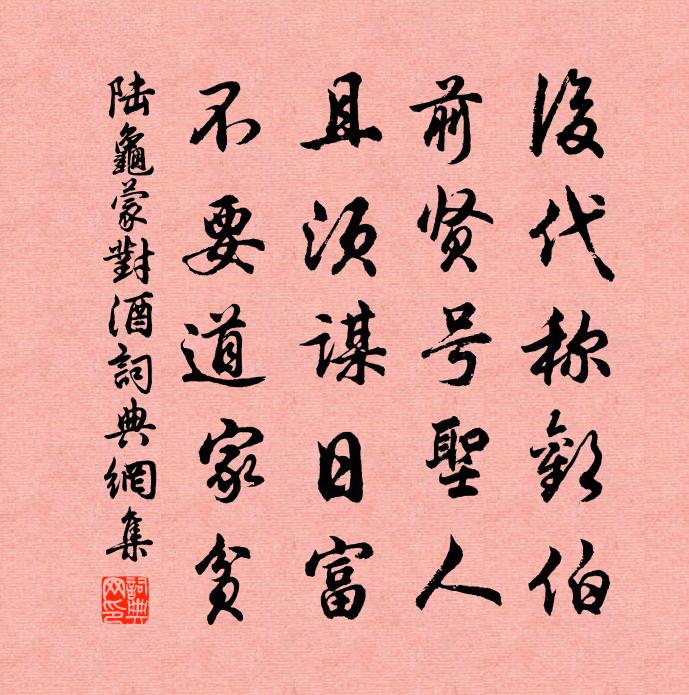 後代称歡伯
前贤号聖人
且须謀日富
不要道家贫
陆龜蒙對酒詞典網集
詞典網印